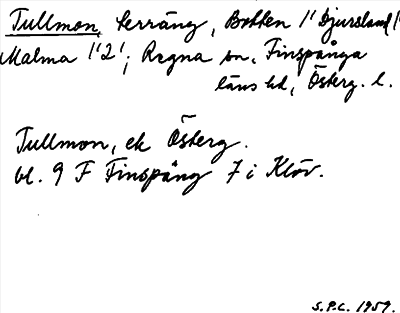 Tullmon, terräng, Botten 1'1 Djursland 1'1
Malma 1'2'; Regna sn, Finspånga
läns hd, Österg. l.
Tullmon, ek Österg.
bl. 9 F Finspång 7 i Klöv.
S.P.C. 1959.